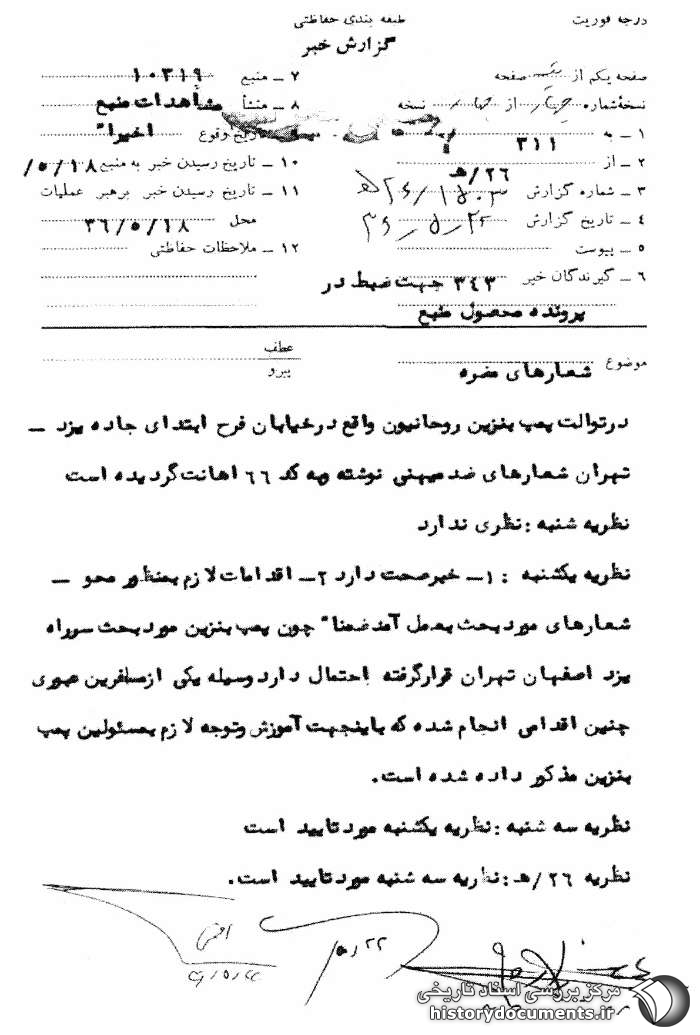 درجه فوریت
طبقه بندی حفاظتی
گزارش خبر
صفحه یکم از یک صفحه
نسخهٔ شماره چهار از چهار نسخه
۱ ـ به ۳۱۱
۲ ـ از ۲۶/هـ
۳ ـ شماره گزارش
۴ ـ تاریخ گزارش
۵ ـ پیوست
۶ ـ گیرندگان خبر ۳۴۳ جهت ضبط در
پرونده محصول منبع
۷ ـ منبع ۱۰۳۱۹
۸ ـ منشأ مشاهدات منبع
۹ ـ تاریخ وقوع اخیرا"
۱۰ ـ تاریخ رسیدن خبر به منبع ۱۸/۵/
۱۱ ـ تاریخ رسیدن خبر برهبر عملیات
محل ۳۶/۵/۱۸
۱۲ ـ ملاحظات حفاظتی
موضوع شعارهای مضره
عطف
پیرو
درتوالت پمپ بنزین روحانیون واقع درخیابان فرح ابتدای جاده یزد ـ
تهران شعارهای ضدمیهنی نوشته وبه کد ۶۶ اهانت گردیده است
نظریه شنبه : نظری ندارد
نظریه یکشنبه : ۱ـ خبرصحت دارد ۲ـ اقدامات لازم بمنظور محو ـ
شعارهای مورد بحث بعمل آمد ضمنا" چون پمپ بنزین مورد بحث سرراه
یزد اصفهان تهران قرارگرفته احتمال دارد وسیله یکی ازمسافرین عبوری
چنین اقدامی انجام شده که باینجهت آموزش وتوجه لازم بمسئولین پمپ
بنزین مذکور داده شده است.
نظریه سه شنبه : نظریه یکشنبه مورد تایید است
نظریه ۲۶/هـ : نظریه سه شنبه مورد تایید است.
۵/۲۲
مرکز بررسی اسناد تاریخی
historydocuments.ir